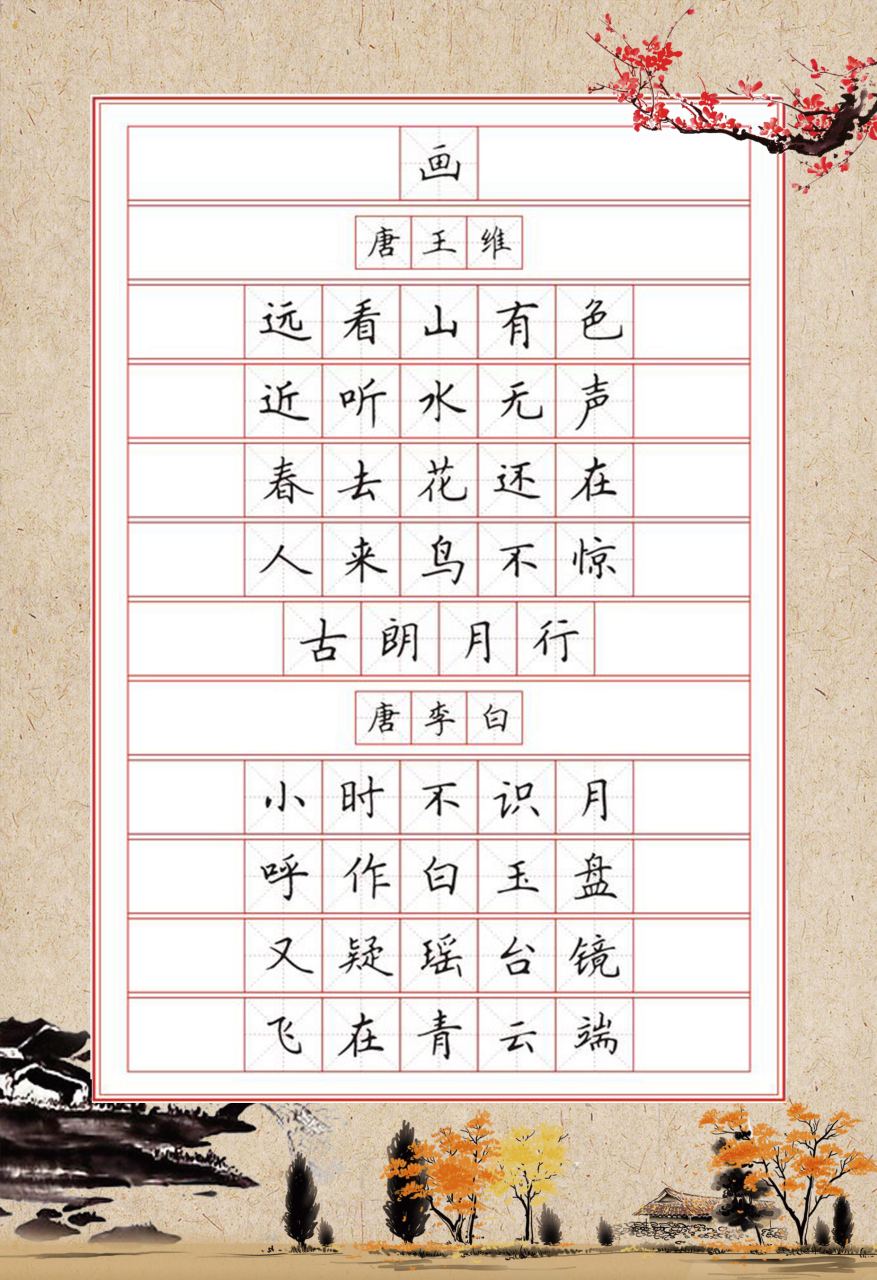 画
唐王维
远看山有色
近听水无声
春去花还在
人来鸟不惊
古朗月行
唐李白
小时不识月
呼作白玉盘
又疑瑶台镜
飞在青云端